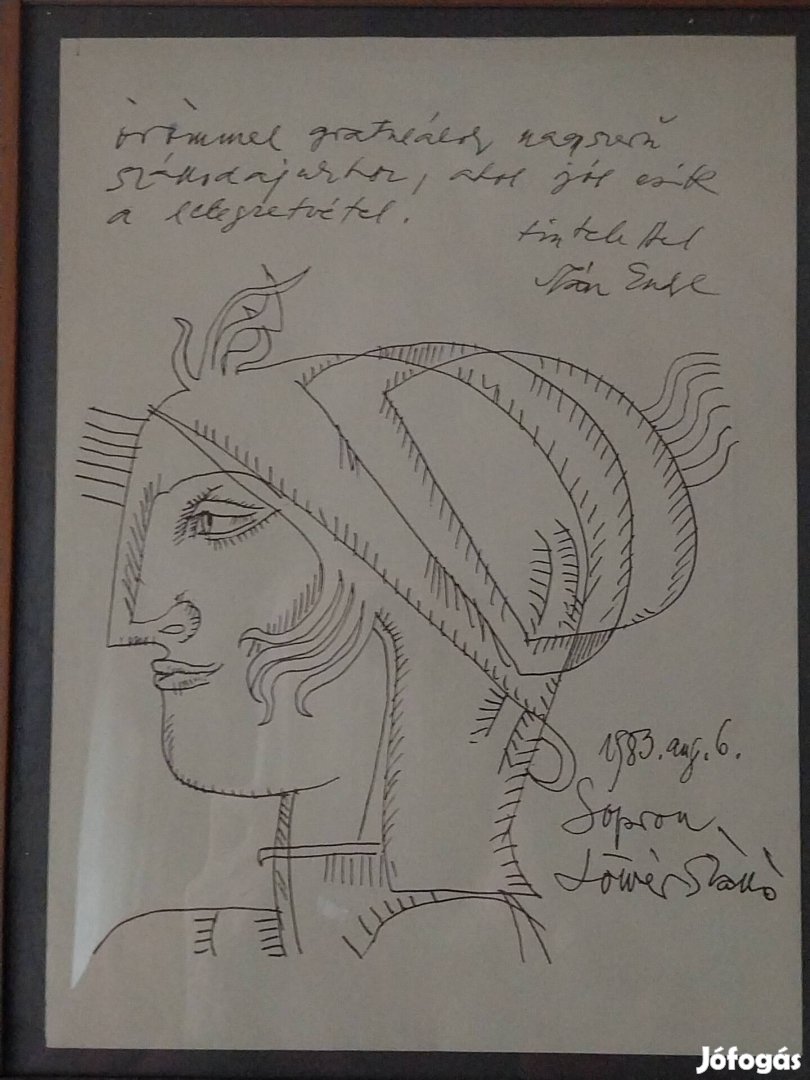 örömmel gratulálok nagyszerű
szállodájukhoz, ahol jól esik
a lélegzetvétel.
tisztelettel
Endre
1983. aug. 6.
Sopron,
Lővér Szálló
Jófogás